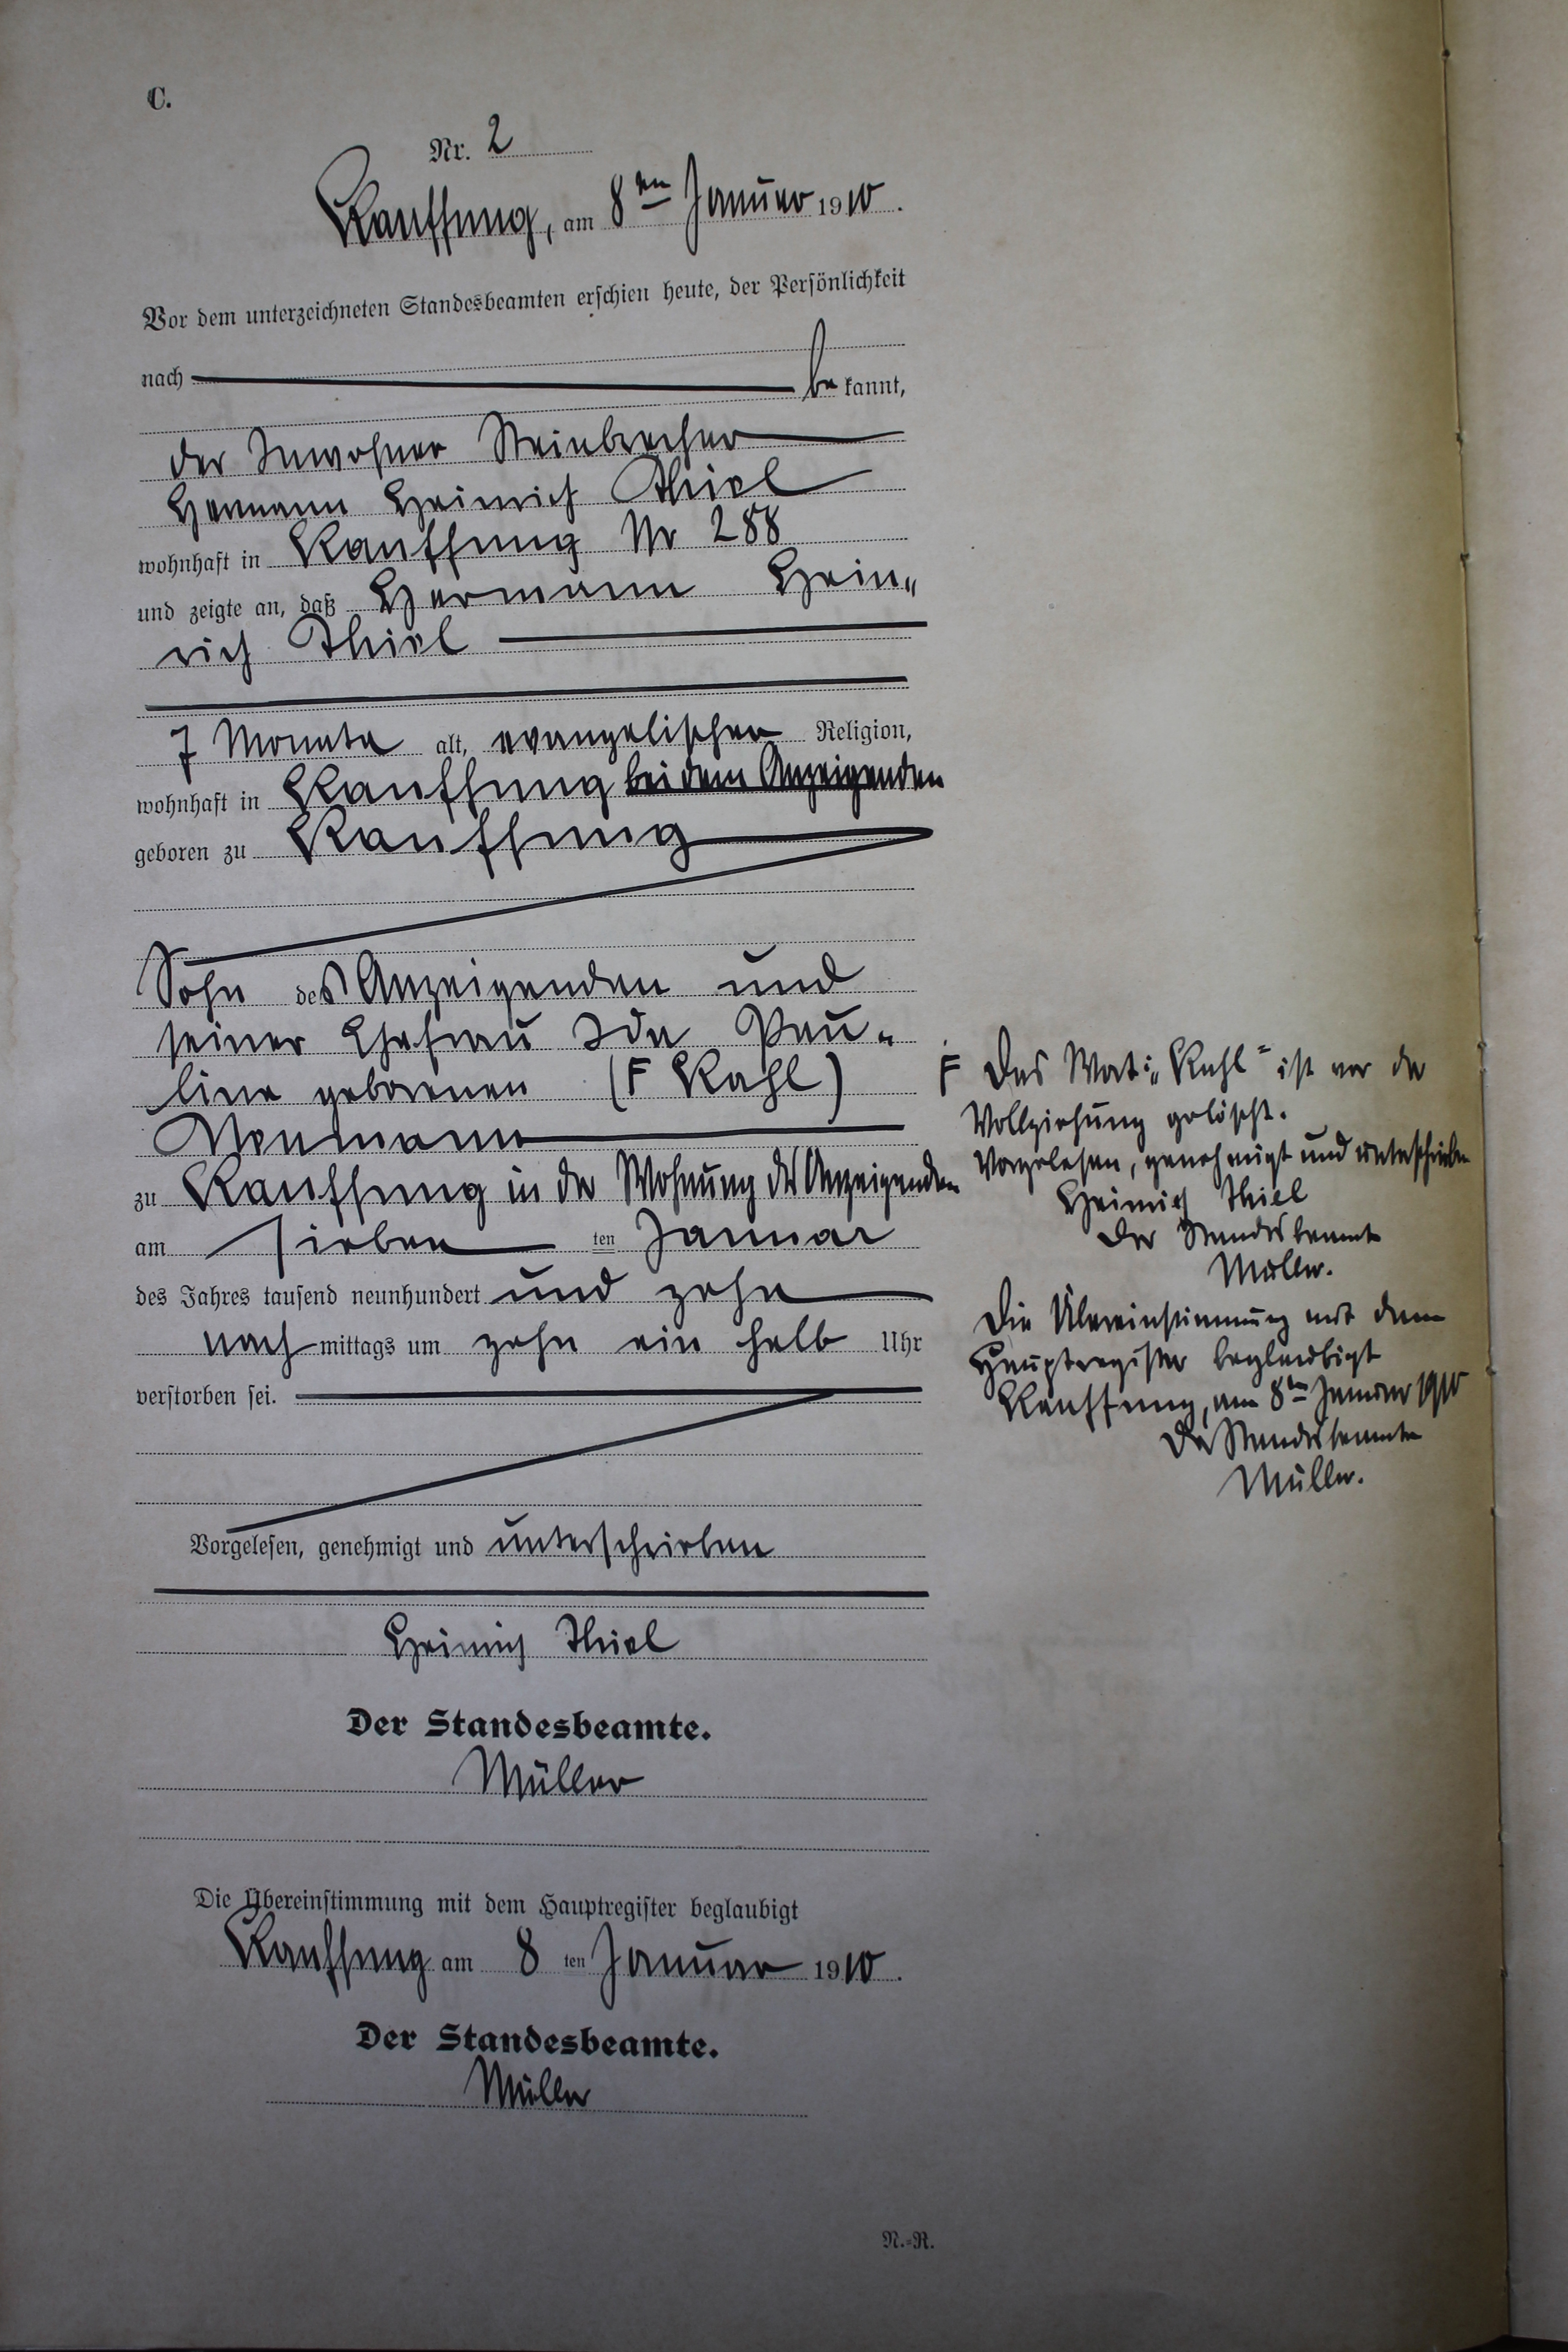 C.
Nr. 2
Kauffung, am 8ten Januar 1910.
Vor dem unterzeichneten Standesbeamten erschien heute, der Persönlichkeit
nach be kannt,
der Inwohner Steinbrecher
Hermann Heinrich Thiel
wohnhaft in Kauffung Nr 288
und zeigte an, daß Hermann Hein„
rich Thiel
7 Monate alt, evangelischer Religion,
wohnhaft in Kauffung bei dem Anzeigenden
geboren zu Kauffung
Sohn des Anzeigenden und
seiner Ehefrau Ida Pau-
line geborenen (F Kahl)
Neumann
zu Kauffung in der Wohnung des Anzeigenden
am sieben ten Januar
des Jahres tausend neunhundert und zehn
nach mittags um zehn ein halb Uhr
verstorben sei.
Vorgelesen, genehmigt und unterschrieben
Heinrich Thiel
Der Standesbeamte.
Müller
Die Übereinstimmung mit dem Hauptregister beglaubigt
Kauffung am 8 ten Januar 1910.
Der Standesbeamte.
Müller
N.=R.
F Das Wort: „Kahl" ist vor der
Vollziehung gelöscht.
Vorgelesen, genehmigt und unterschrieben
Heinrich Thiel
Der Standesbeamte
Müller.
Die Übereinstimmung mit dem
Hauptregister beglaubigt
Kauffung, am 8ten Januar 1910
Der Standesbeamte
Müller.